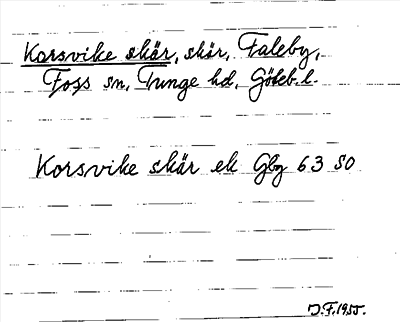 Korsvike skär, skär, Faleby,
Foss sn, Tunge hd, Göteb. l.
Korsvike skär ek Gbg 63 SO
J.F. 1955.